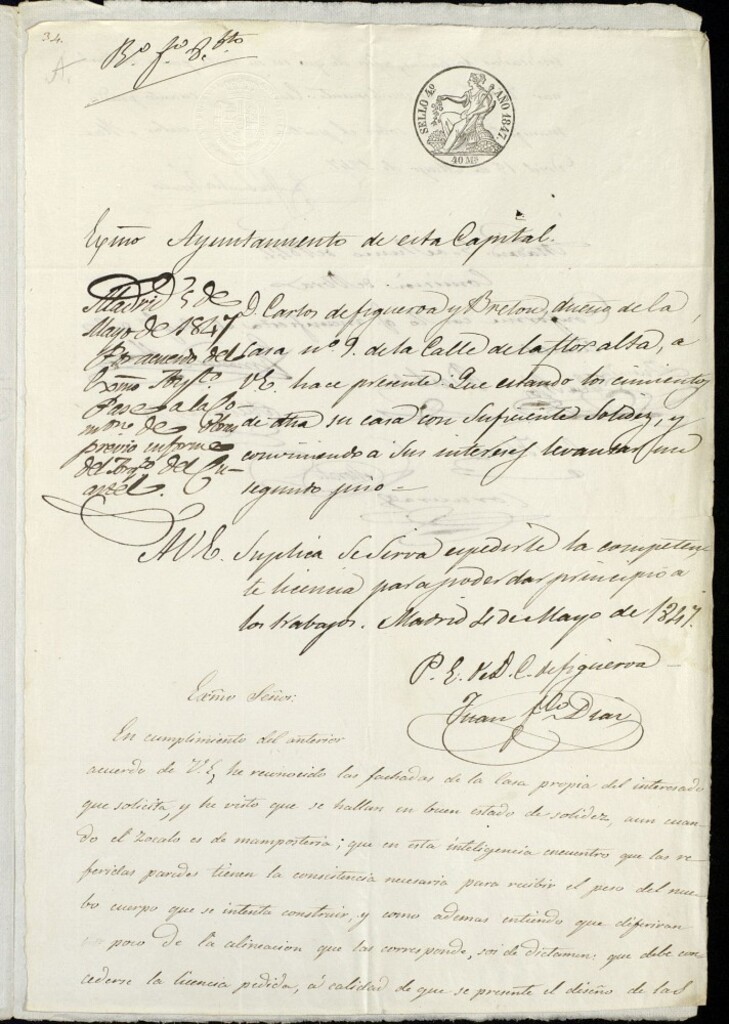 34.
SELLO 4º AÑO 1847.
40 Ms
Exmo Ayuntamiento de esta Capital.
Madrid 5 de
Mayo de 1847
Por acuerdo del
Exmo Aytº
Pase a la Co-
mon de Obras
previo informe
del Arqº del Cu-
artel.
D. Carlos de figueroa y Breton, dueño de la
casa nº 9. de la Calle de la flor alta, a
V.E. hace presente. Que estando los cimientos
de dha su casa con suficiente solidez, y
conviniendo a sus intereses levantar un
segundo piso =
A V.E. Suplica se sirva expedirle la competen-
te licencia para poder dar principio a
los trabajos. Madrid 4 de Mayo de 1847.
P. E. de D. C. de figueroa
Juan Diaz
Exmo Señor:
En cumplimiento del anterior
acuerdo de V.E, he reconocido las fachadas de la Casa propia del interesado
que solicita, y he visto que se hallan en buen estado de solidez, aun cuan-
do el zocalo es de mamposteria; que en esta inteligencia encuentro que las re-
feridas paredes tienen la consistencia necesaria para recibir el peso del nue-
bo cuerpo que se intenta construir, y como ademas entiendo que diferiran
poco de la alineacion que las corresponde, soi de dictamen: que debe con-
cederse la licencia pedida, á calidad de que se presente el diseño de las